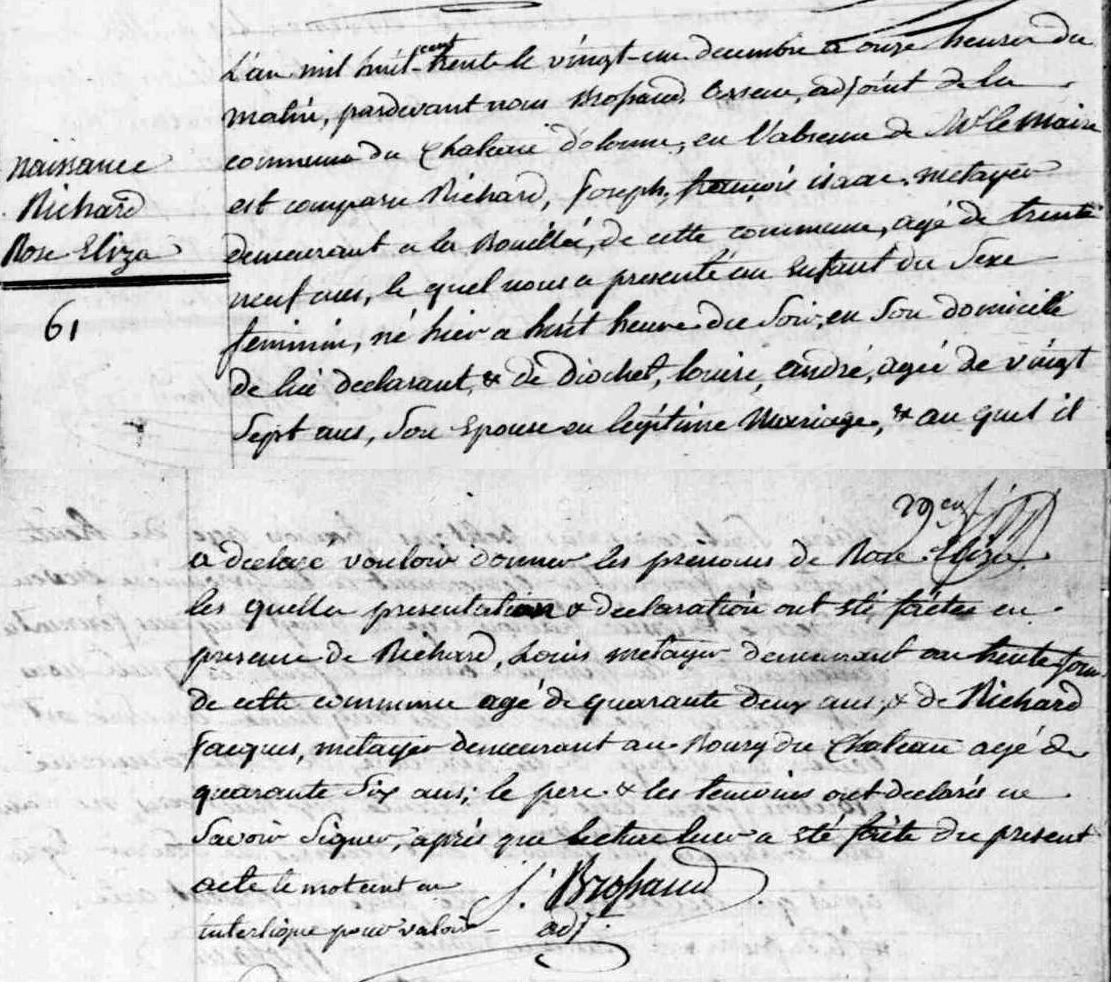 naissance
Richard
Rose Eliza
61
L'an mil huit cent trente le vingt-un decembre a onze heures du
matin, pardevant nous Brossaud, adjoint de la
commune du Chateau d'olonne, en l'absence de Mr le maire
est comparu Richard, Joseph, françois isaac, metayer
demeurant a la Bouillée, de cette commune, agé de trente
neuf ans, le quel nous a presenté un Enfant du Sexe
feminin, né hier a huit heure du Soir, en Son domicile
de lui declarant, & de Diochet, louise, andré, agée de vingt
Sept ans, Son Epouse en legitime Mariage, & au quel il
a declaré vouloir donner les prenoms de Rose Eliza.
les quelles presentation & declaration ont été faites en
presence de Richard, Louis metayer demeurant au
de cette commune agé de quarante deux ans, & de Richard
Jacques, metayer demeurant au Bourg du Chateau agé de
quarante Six ans; le pere & les temoins ont declarés ne
Savoir Signer, après que lecture leur a été faite du present
acte le mot cent en
interligne pour valoir
J. Brossaud
adj.